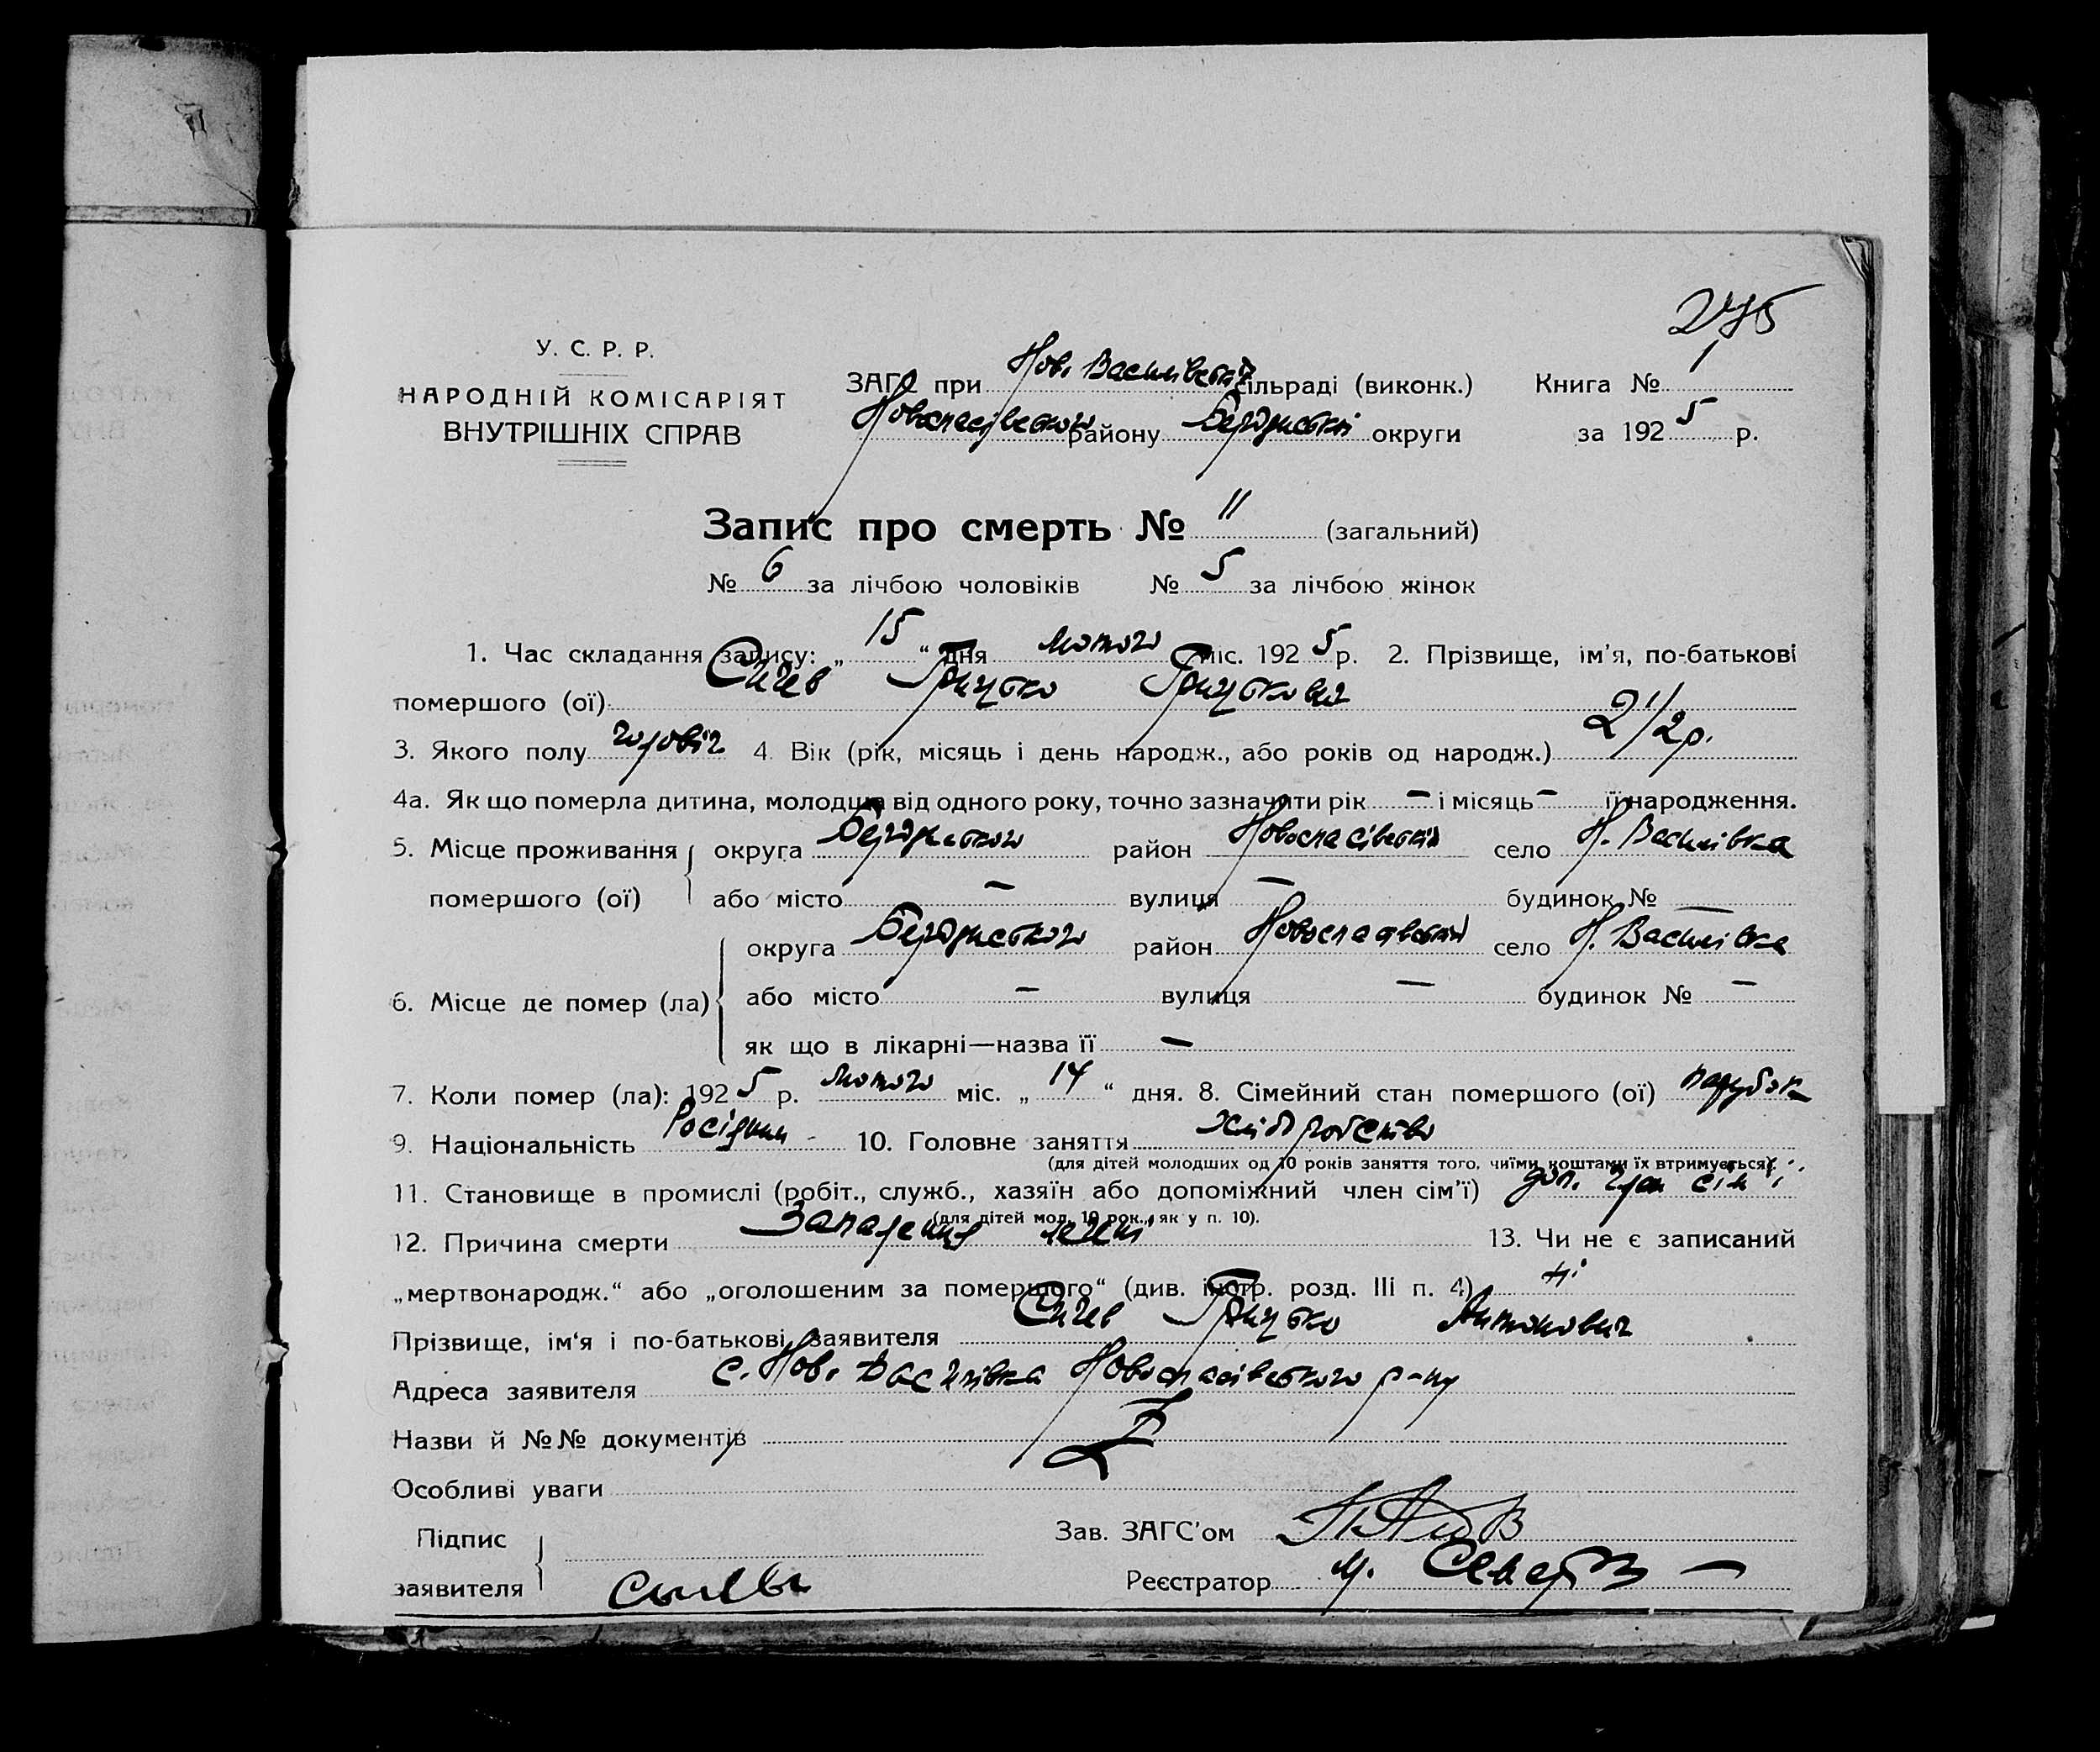 275
У. С. Р. Р.
НАРОДНІЙ КОМІСАРІЯТ
ВНУТРІШНІХ СПРАВ
ЗАГС при Нов. Василівській сільраді (виконк.) Книга № 1
Новоспасівського району Бердянської округи за 1925 р.
Запис про смерть № 11 (загальний)
№ 6 за лічбою чоловіків № 5 за лічбою жінок
1. Час складання запису: „15“ дня лютого міс. 1925 р. 2. Прізвище, ім'я, по-батькові
помершого (ої) Сичев Грицько Грицькович
3. Якого полу чоловіч 4. Вік (рік, місяць і день народж., або років од народж.) 2 1/2 р.
4а. Як що померла дитина, молодша від одного року, точно зазначити рік — і місяць — її народження.
5. Місце проживання помершого (ої) округа Бердянського район Новоспасівський село Н. Василівка
або місто — вулиця — будинок № —
6. Місце де помер (ла) округа Бердянського район Новоспасівський село Н. Василівка
або місто — вулиця — будинок № —
як що в лікарні—назва її —
7. Коли помер (ла): 1925 р. лютого міс. „14“ дня. 8. Сімейний стан помершого (ої) парубок
9. Національність 10. Головне заняття хліборобство
(для дітей молодших од 10 років заняття того, чиїми коштами їх втримується)
11. Становище в промислі (робіт., служб., хазяїн або допоміжний член сім'ї) доп. член сім'ї
(для дітей мол. 10 рок., як у п. 10).
12. Причина смерти Запалення легень 13. Чи не є записаний
„мертвонародж.“ або „оголошеним за помершого“ (див. інстр. розд. III п. 4) ні
Прізвище, ім'я і по-батькові заявителя Сичев Грицько Антонович
Адреса заявителя с. Нов. Василівка Новоспасівського р-ну
Назви й №№ документів
Особливі уваги
Підпис заявителя
Зав. ЗАГС'ом
Реєстратор